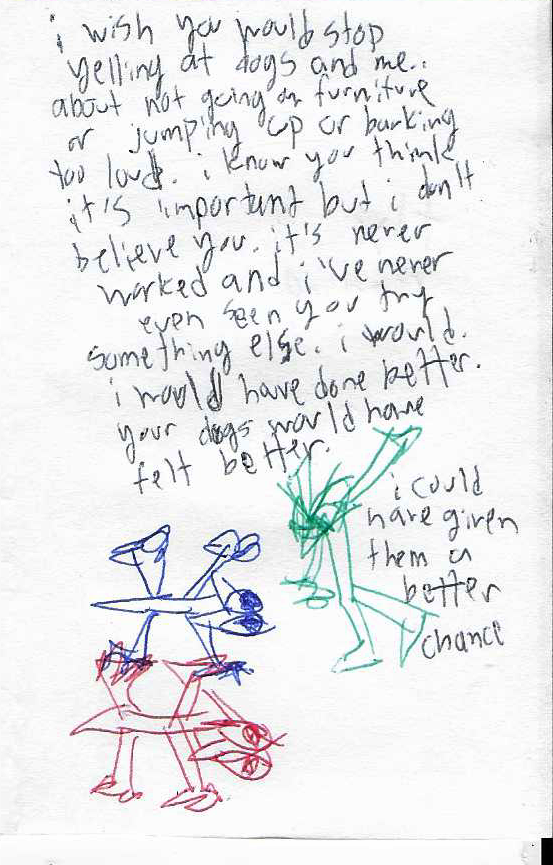 i wish you would stop
yelling at dogs and me..
about not going on furniture
or jumping up or barking
too loud. i know you think
it's important but i don't
believe you. it's never
worked and i've never
even seen you try
something else. i would.
i would have done better.
your dogs would have
felt better.
i could
have given
them a
better
chance